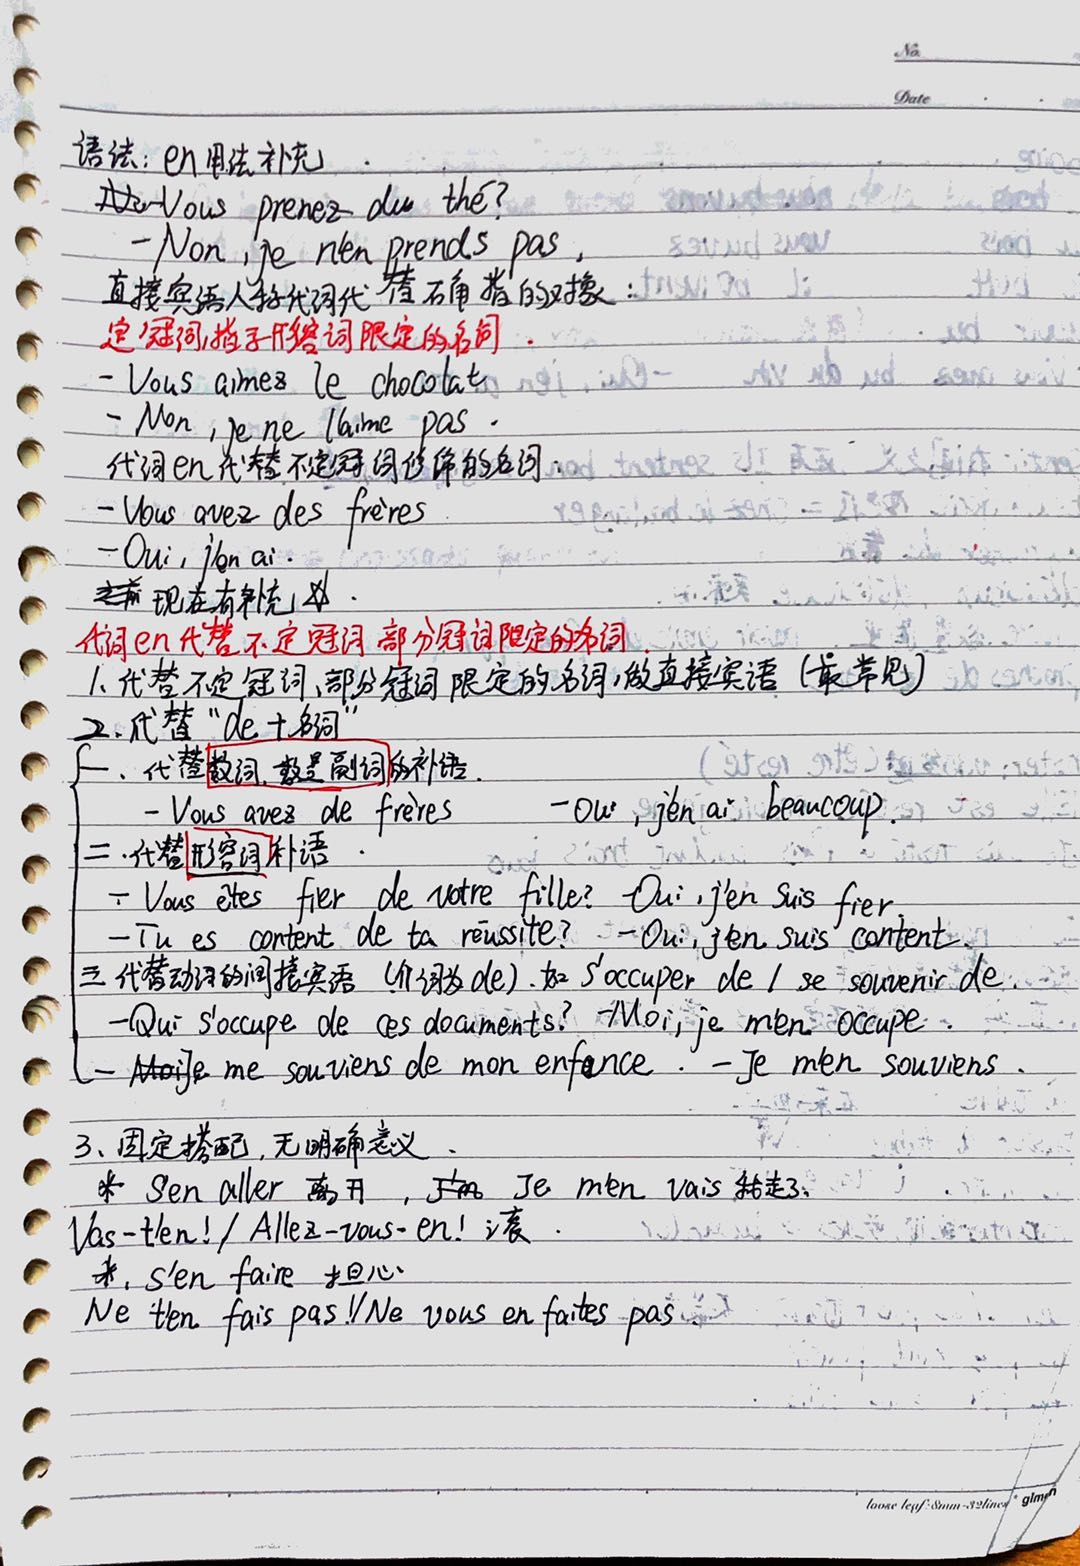 No.
Date
语法: en用法补充
-Vous prenez du thé?
-Non, je n'en prends pas,
直接宾语人称代词代替确指的对象:
定冠词,指示形容词限定的名词.
-Vous aimez le chocolat
-Non, je ne l'aime pas.
代词en代替不定冠词修饰的名词.
-Vous avez des frères
-Oui, j'en ai.
现在有补充.
代词en代替不定冠词部分冠词限定的名词
1、代替不定冠词、部分冠词限定的名词,做直接宾语 (最常见)
2、代替“de+名词”
一、代替数词、数量副词的补语.
-Vous avez de frères -Oui, j'en ai beaucoup.
二.代替形容词补语.
-Vous êtes fier de votre fille? -Oui, j'en suis fier.
-Tu es content de ta réussite? -Oui, j'en suis content.
三代替动词的间接宾语 (介词为de). 如 s'occuper de / se souvenir de.
-Qui s'occupe de ces documents? -Moi, je m'en occupe.
-Je me souviens de mon enfance. -Je m'en souviens.
3、固定搭配,无明确意义.
* s'en aller 离开, Je m'en vais 我走了.
Vas-t'en! / Allez-vous-en! 滚.
*. s'en faire 担心
Ne t'en fais pas! / Ne vous en faites pas.
loose leaf:8mm-32lines